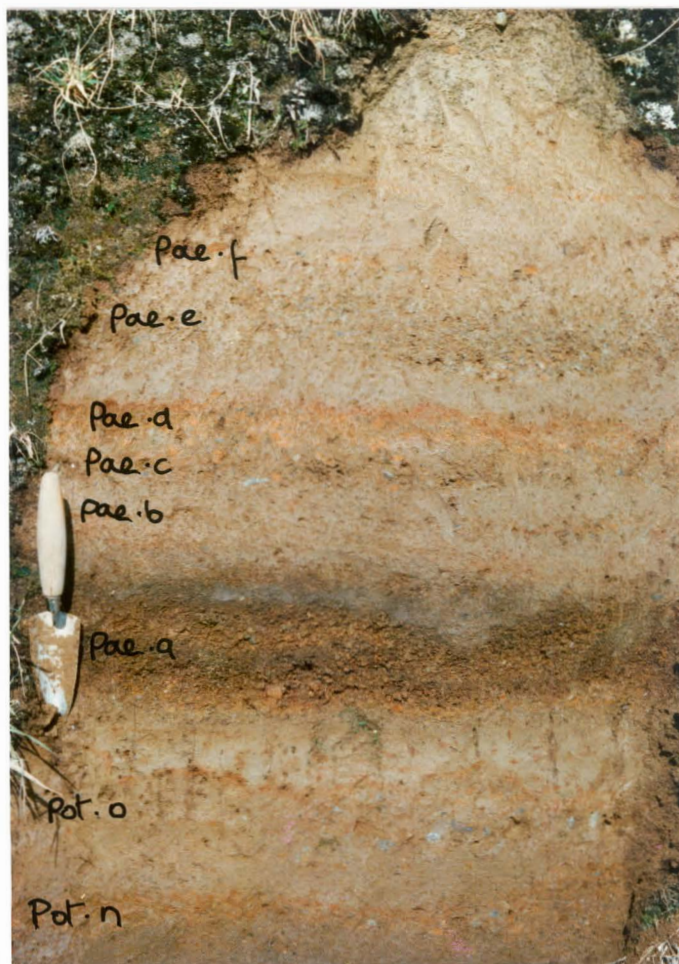 Pae.f
Pae.e
Pae.d
Pae.c
Pae.b
Pae.a
Pot.o
Pot.n